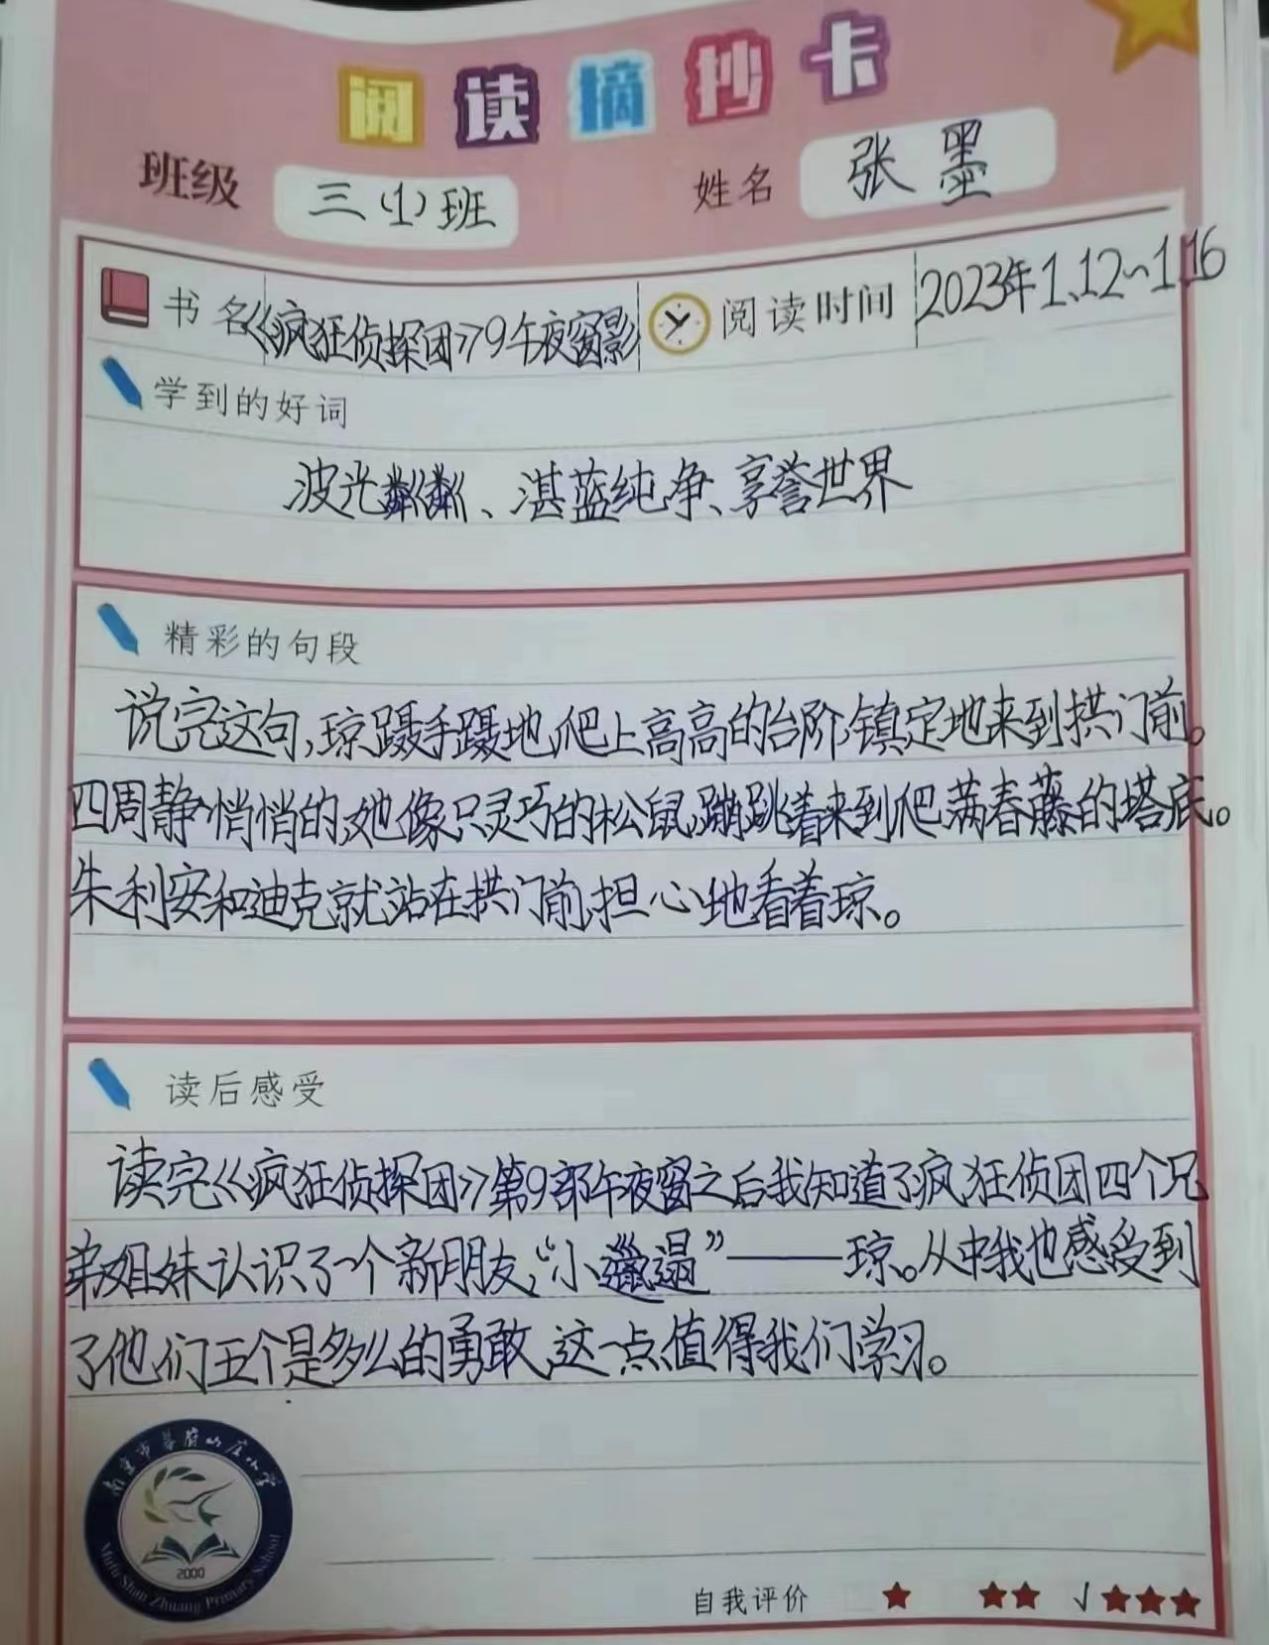 阅读摘抄卡
班级 三(1)班 姓名 张墨
书名 《疯狂侦探团》9午夜窗影 阅读时间 2023年1.12~1.16
学到的好词
波光粼粼、湛蓝纯净、享誉世界
精彩的句段
说完这句,琼蹑手蹑地,爬上高高的台阶,镇定地来到拱门前。
四周静悄悄的,她像只灵巧的松鼠,蹦跳着来到爬满春藤的塔底。
朱利安和迪克就站在拱门前,担心地看着琼。
读后感受
读完《疯狂侦探团》第9部午夜窗之后我知道了疯狂侦团四个兄
弟姐妹认识了一个新朋友,“小邋遢”——琼。从中我也感受到
了他们五个是多么的勇敢,这一点值得我们学习。
南京市幕府山庄小学
2000
Mufu Shan Zhuang Primary School
自我评价 ★ ★★ √★★★